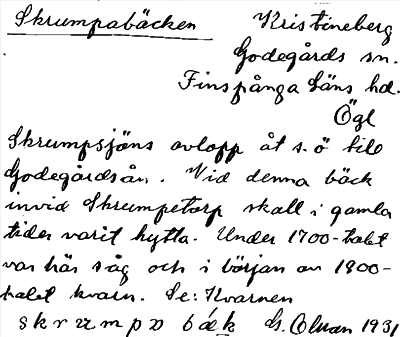 Skrumpabäcken Kristineberg
Godegårds sn.
Finspånga läns hd.
Ögl
Skrumpsjöns avlopp åt s.ö till
Godegårdsån. Vid denna bäck
invid Skrumpetorp skall i gamla
tider varit hytta. Under 1700-talet
var här såg och i början av 1800-
talet kvarn. Se: Kvarnen
skrumpɒ bæk G. 1931